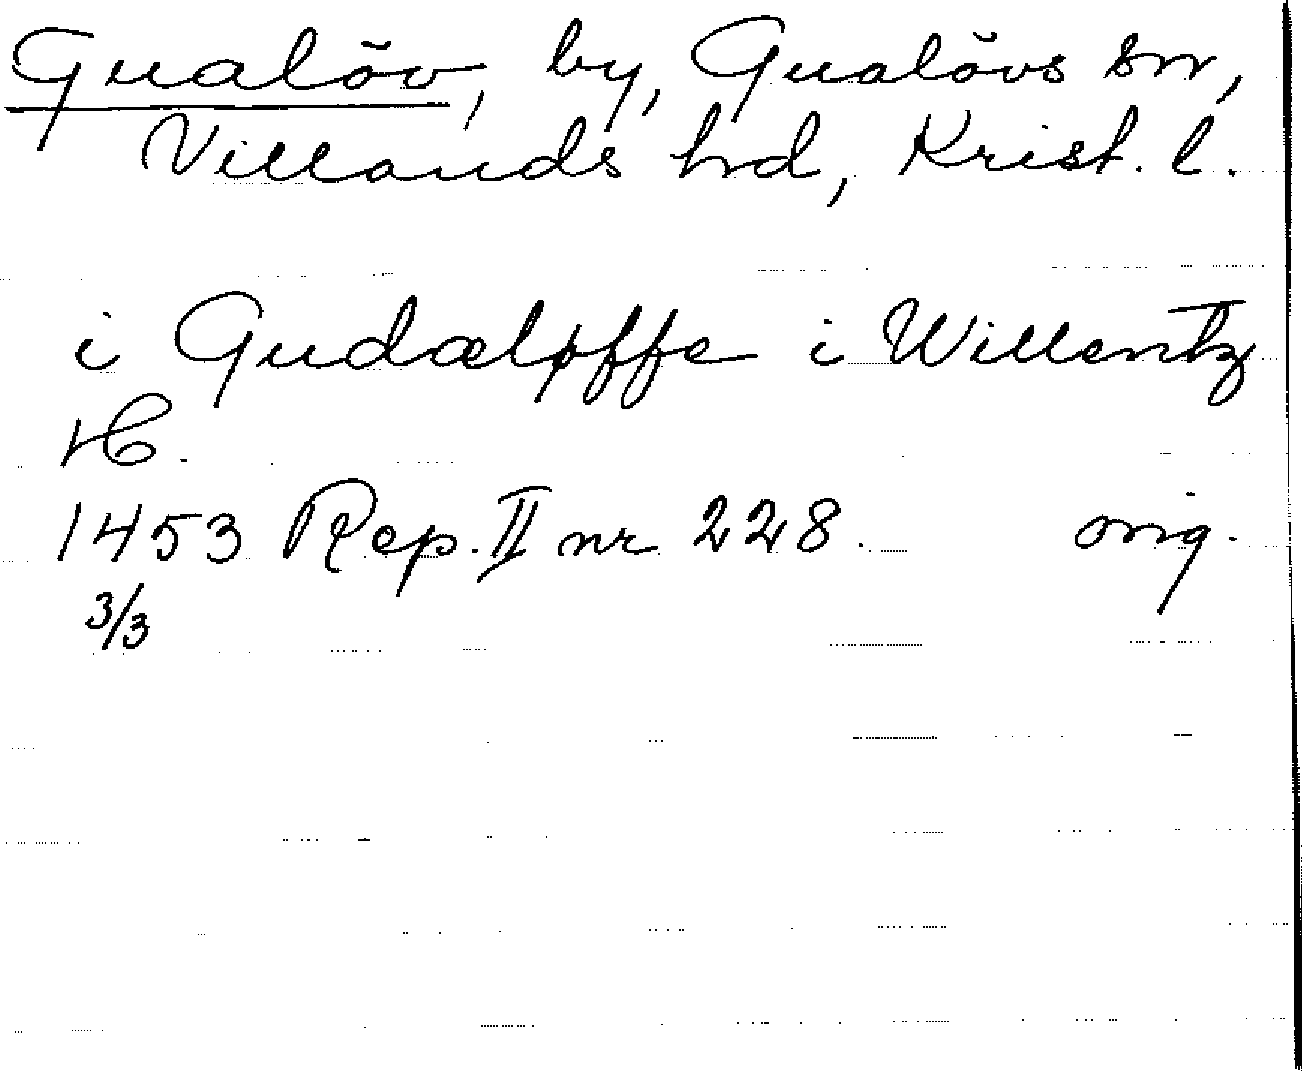 Gualöv, by, Gualövs sn,
Villands hd, Krist. l.
i Gudæløffe i Willentz
H.
1453 Rep. II nr 228. orig.
3/3